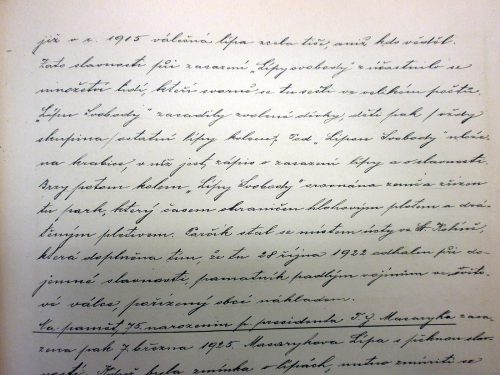 již v r. 1915 válečná lípa zcela tiše, aniž kdo věděl.
Zato slavnosti při zasazení „Lípy svobody" z účastnilo se
množství lidí, kteří svorně se tu sešli ve velikém počtu.
„Lípu Svobody" zasadily zvolené dívky, děti pak /vždy
skupina/ ostatní lípy kolem. Pod „Lípou Svobody" vlože-
na krabice, v níž jest zápis o zasazení lípy a o slavnosti.
Brzy potom kolem „Lípy Svobody" srovnána země a zřízen
tu park, který časem ohraničen hlohovým plotem a drá-
těným pletivem. Parčík stal se místem úcty ve St.
která doplněna tím, že tu 28 října 1922 odhalen při do-
jemné slavnosti, památník padlým vojínům ve světo-
vé válce, pořízený obcí nákladem.
Na paměť 75. narozenin p. presidenta T. G. Masaryka zasa-
zena pak 7. března 1925. Masarykova Lípa s pěknou slav-
ností. Když byla zmínka o lípách, nutno zmíniti se